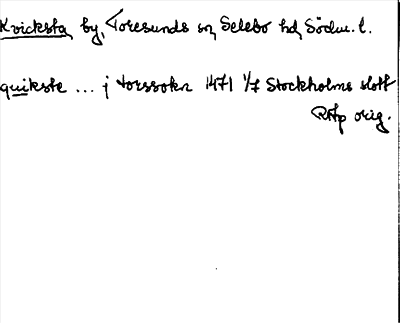 Kvicksta by, Toresunds sn, Selebo hd, Södm. l.
quikste ... j torssokn 1471 1/7 Stockholms slott
RAp orig.